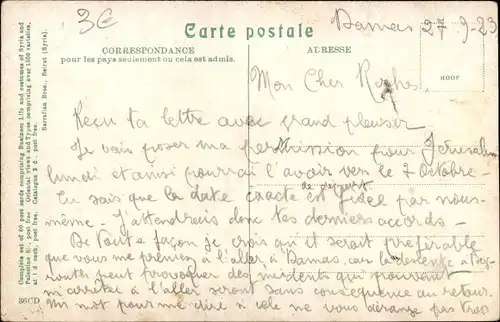 3€
Carte postale
Damas 27-9-23
CORRESPONDANCE
pour les pays seulement ou cela est admis.
ADRESSE
HOOF
Mon Cher
Reçu ta lettre avec grand plaisir
Je vais poser ma permission pour Jerusalem
lundi et ainsi pourrai l'avoir vers le 7 octobre-
Tu sais que la date exacte de départ est fixée par nous-
même. J'attendrais donc tes derniers accords
De toute façon je crois qu'il serait préférable
que vous me preniez à l'aller à Damas, car la descente à
pourrait provoquer des incidents qui pouvant
m'arrêter à l'aller seront sans conséquence au retour.
Un mot pour me dire si cela ne vous dérange pas trop
Complete set of 60 post cards comprising Business Life and costumes of Syria and
Palestine post free. Oriental views and Types comprising over 1500 varieties,
at 1 d. each, post free. Catalogue 3 d. post free.
Sarrafian Bros., Beirut (Syria).
36CD